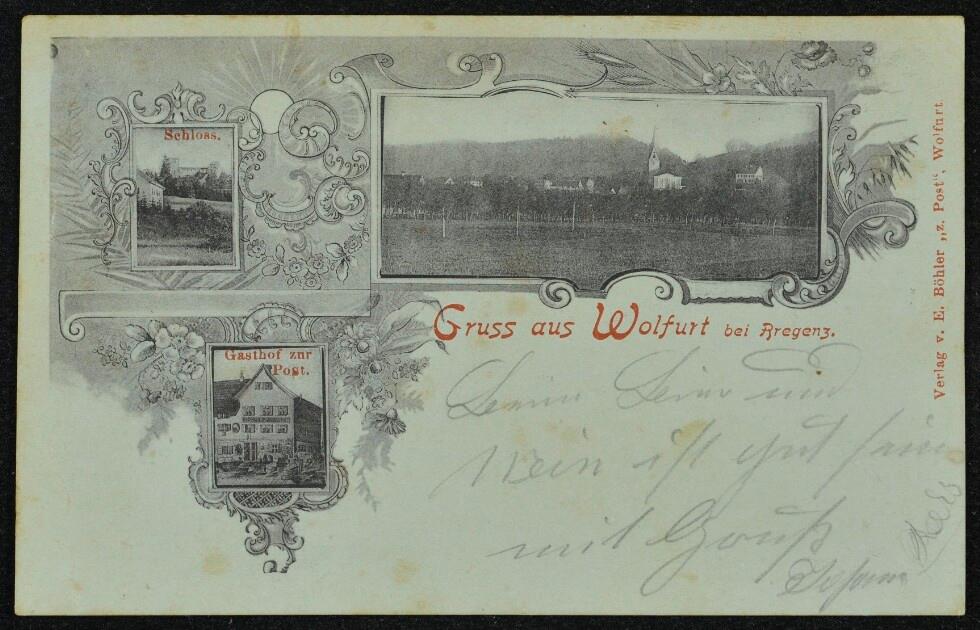 Schloss.
Gasthof zur
Post.
Gruss aus Wolfurt bei Bregenz.
Verlag v. E. Böhler „z. Post“, Wolfurt.
und
Wein ist gut
mit Gruß